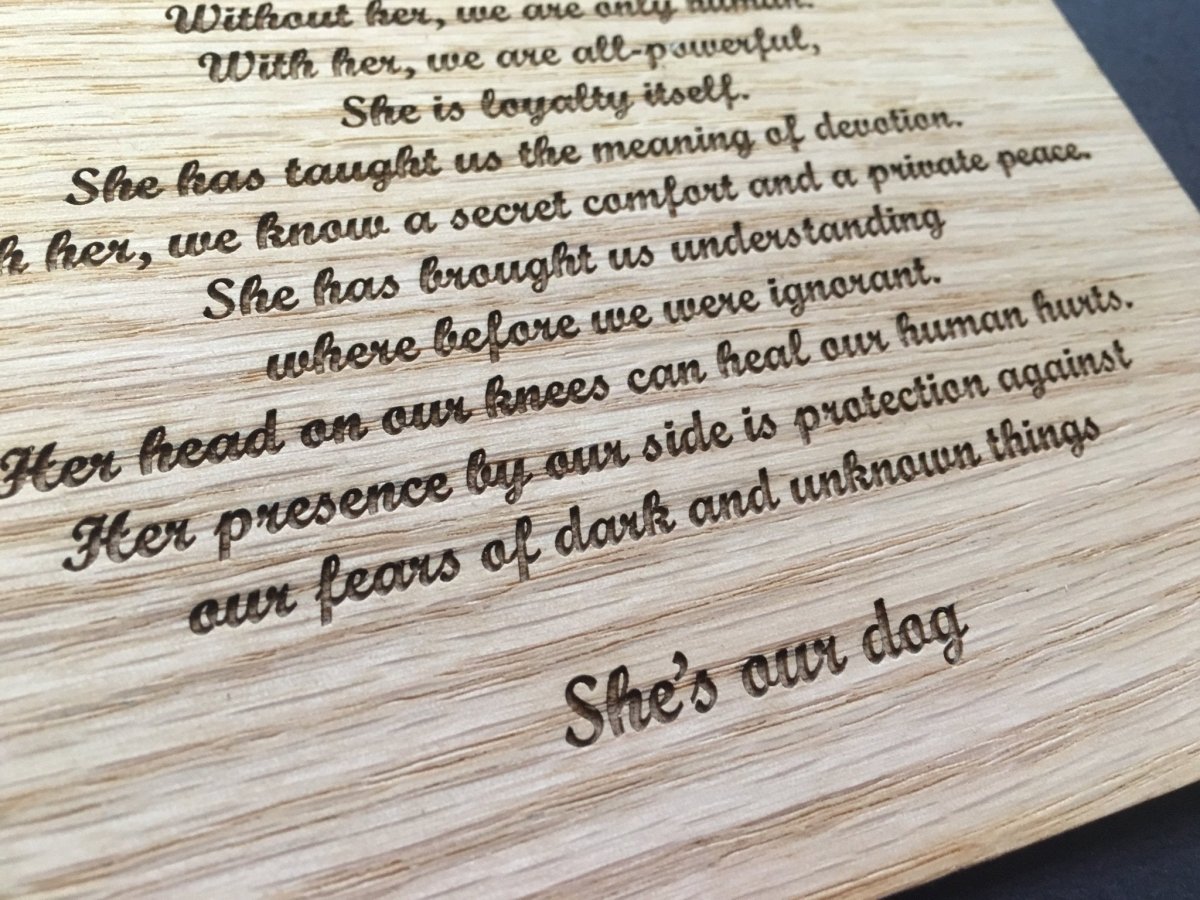 Without her, we are only human.
With her, we are all-powerful,
She is loyalty itself.
She has taught us the meaning of devotion.
her, we know a secret comfort and a private peace.
She has brought us understanding
where before we were ignorant.
Her head on our knees can heal our human hurts.
Her presence by our side is protection against
our fears of dark and unknown things
She's our dog